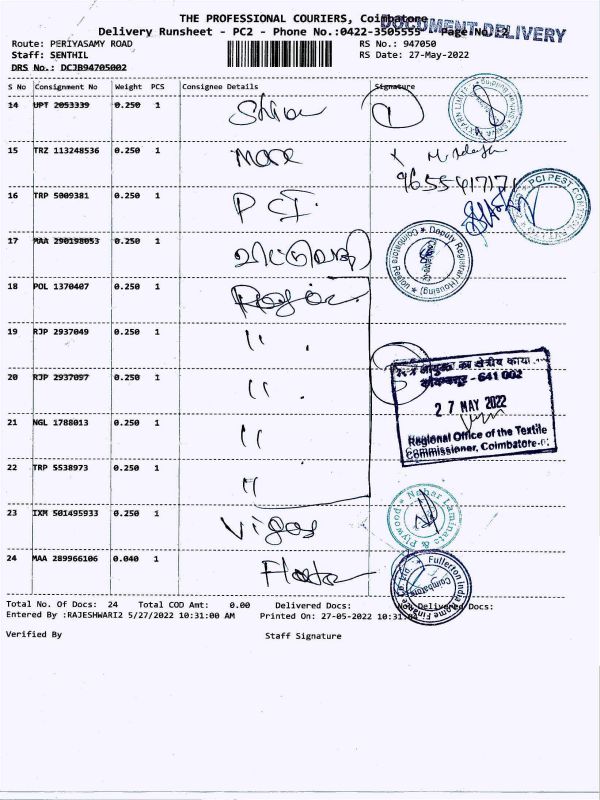 THE PROFESSIONAL COURIERS, Coimbatore
DOCUMENT DELIVERY
Delivery Runsheet - PC2 - Phone No.:0422-3505555 Page No. 2
Route: PERIYASAMY ROAD RS No.: 947050
Staff: SENTHIL RS Date: 27-May-2022
DRS No.: DCJB94705002
S No Consignment No Weight PCS Consignee Details Signature
14 UPT 2053339 0.250 1
15 TRZ 113248536 0.250 1
9655417171
16 TRP 5009381 0.250 1 PCI.
PCI PEST CONTROL
17 MAA 290198053 0.250 1
Deputy Registrar (Housing) Coimbatore Region
18 POL 1370407 0.250 1
19 RJP 2937049 0.250 1 "
क्षेत्रीय
20 RJP 2937097 0.250 1 "
- 641 002
27 MAY 2022
21 NGL 1788013 0.250 1 "
Regional Office of the Textile
Commissioner, Coimbatore-
22 TRP 5538973 0.250 1 "
23 IXM 501495933 0.250 1
Nahar Laminats & Plywood
24 MAA 289966106 0.040 1
Fullerton India Home Finance Co. Ltd. Coimbatore
Total No. Of Docs: 24 Total COD Amt: 0.00 Delivered Docs: Not Delivered Docs:
Entered By :RAJESHWARI2 5/27/2022 10:31:00 AM Printed On: 27-05-2022 10:31:04
Verified By Staff Signature